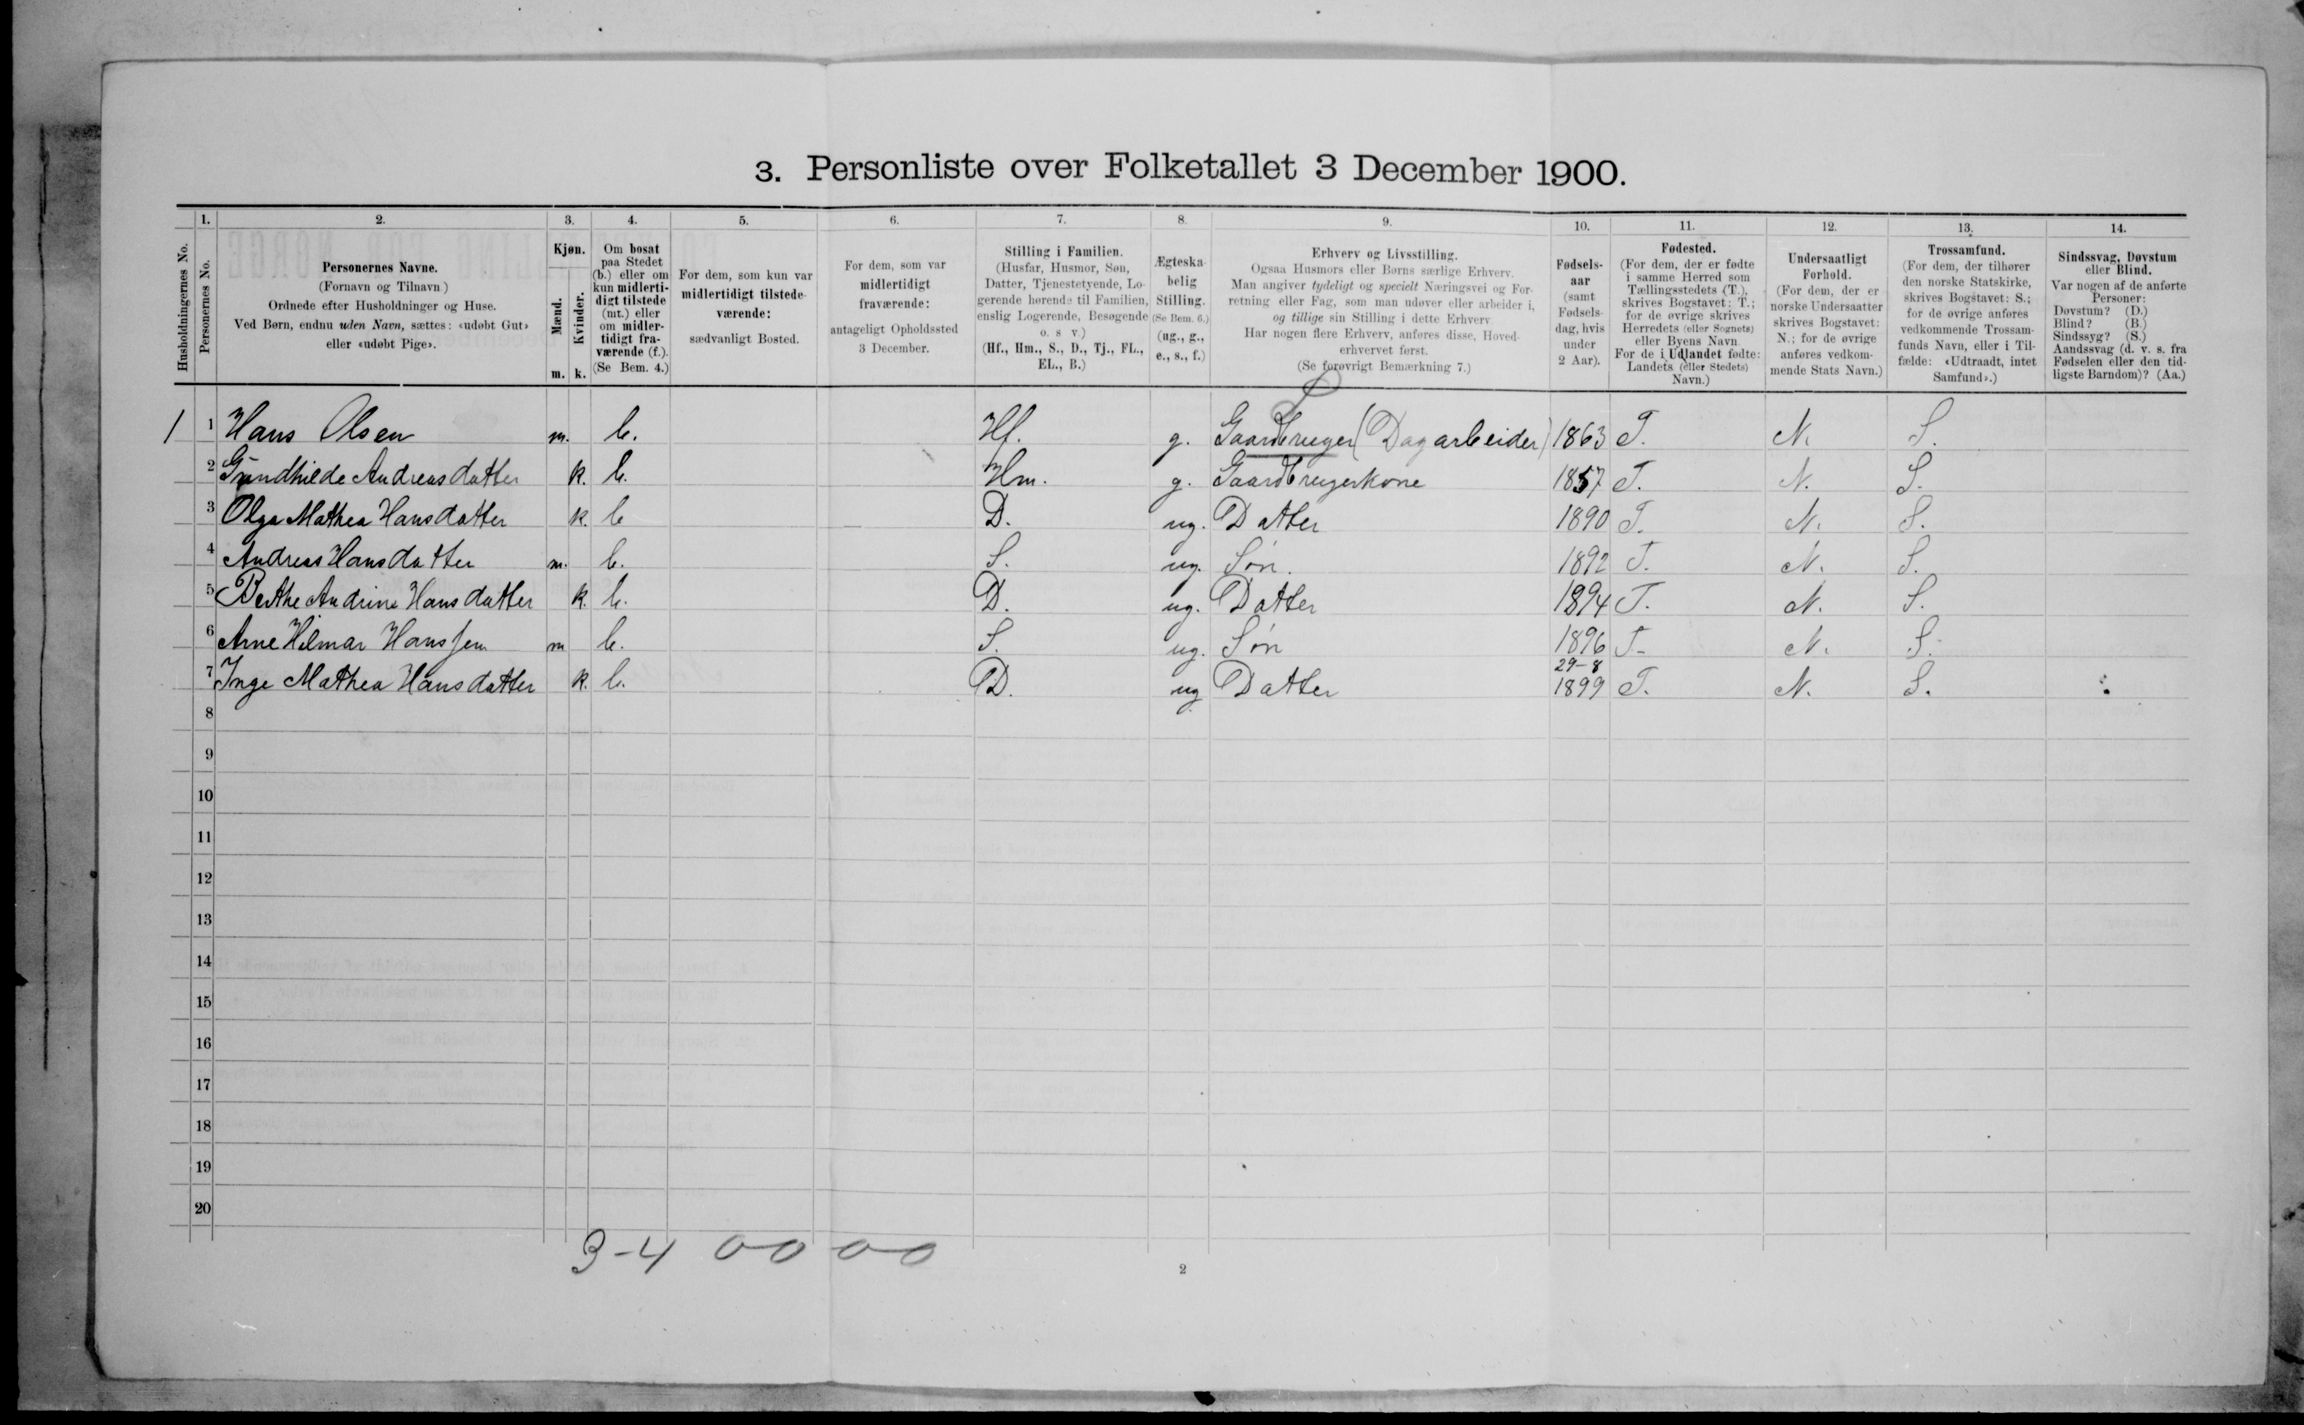 3. Personliste over Folketallet 3 December 1900.
1. 2. 3. 4. 5. 6. 7. 8. 9. 10. 11. 12. 13. 14.
Husholdningernes No.
Personernes No.
Personernes Navne.
(Fornavn og Tilnavn)
Ordnede efter Husholdninger og Huse.
Ved Børn, endnu uden Navn, sættes: «udøbt Gut»
eller «udøbt Pige».
Kjøn.
Mænd.
Kvinder.
m. k.
Om bosat
paa Stedet
(b.) eller om
kun midlerti-
digt tilstede
(mt.) eller
om midler-
tidigt fra-
værende (f.).
(Se Bem. 4.)
For dem, som kun var
midlertidigt tilstede-
værende:
sædvanligt Bosted.
For dem, som var
midlertidigt
fraværende:
antageligt Opholdssted
3 December.
Stilling i Familien.
(Husfar, Husmor, Søn,
Datter, Tjenestetyende, Lo-
gerende hørende til Familien,
enslig Logerende, Besøgende
o. s v.)
(Hf., Hm., S., D., Tj., FL.,
EL., B.)
Ægteska-
belig
Stilling.
(Se Bem. 6.)
(ug., g.,
e., s., f.)
Erhverv og Livsstilling.
Ogsaa Husmors eller Børns særlige Erhverv.
Man angiver tydeligt og specielt Næringsvei og For-
retning eller Fag, som man udøver eller arbeider i,
og tillige sin Stilling i dette Erhverv.
Har nogen flere Erhverv, anføres disse, Hoved-
erhvervet først.
(Se forøvrigt Bemærkning 7.)
Fødsels-
aar
(samt
Fødsels-
dag, hvis
under
2 Aar).
Fødested.
(For dem, der er fødte
i samme Herred som
Tællingsstedets (T.),
skrives Bogstavet: T.;
for de øvrige skrives
Herredets (eller Sognets)
eller Byens Navn
For de i Udlandet fødte:
Landets (eller Stedets)
Navn.)
Undersaatligt
Forhold.
(For dem, der er
norske Undersaatter
skrives Bogstavet:
N.; for de øvrige
anføres vedkom-
mende Stats Navn.)
Trossamfund.
(For dem, der tilhører
den norske Statskirke,
skrives Bogstavet: S.;
for de øvrige anføres
vedkommende Trossam-
funds Navn, eller i Til-
fælde: «Udtraadt, intet
Samfund».)
Sindssvag, Døvstum
eller Blind.
Var nogen af de anførte
Personer:
Døvstum? (D.)
Blind? (B.)
Sindssyg? (S.)
Aandssvag (d. v. s. fra
Fødselen eller den tid-
ligste Barndom)? (Aa.)
1 1 Hans Olsen m. b. Hf. g. Gaardbruger (Dagarbeider) 1863 T. N. S.
2 Gundhilde Andreasdatter k. b. Hm. g. Gaardbrugerkone 1857 T. N. S.
3 Olga Mathea Hansdatter k. b D. ug. Datter 1890 T. N. S.
4 Andreas Hansdatter m. b. S. ug. Søn. 1892 T. N. S.
5 Berthe Andrine Hansdatter k. b. D. ug. Datter 1894 T. N. S.
6 Arne Hilmar Hanssen m b. S. ug. Søn 1896 T- N. S.
7 Inge Mathea Hansdatter k. b. D. ug Datter 29-8 1899 T. N. S.
8
9
10
11
12
13
14
15
16
17
18
19
20
3-4 0-0 0-0
2